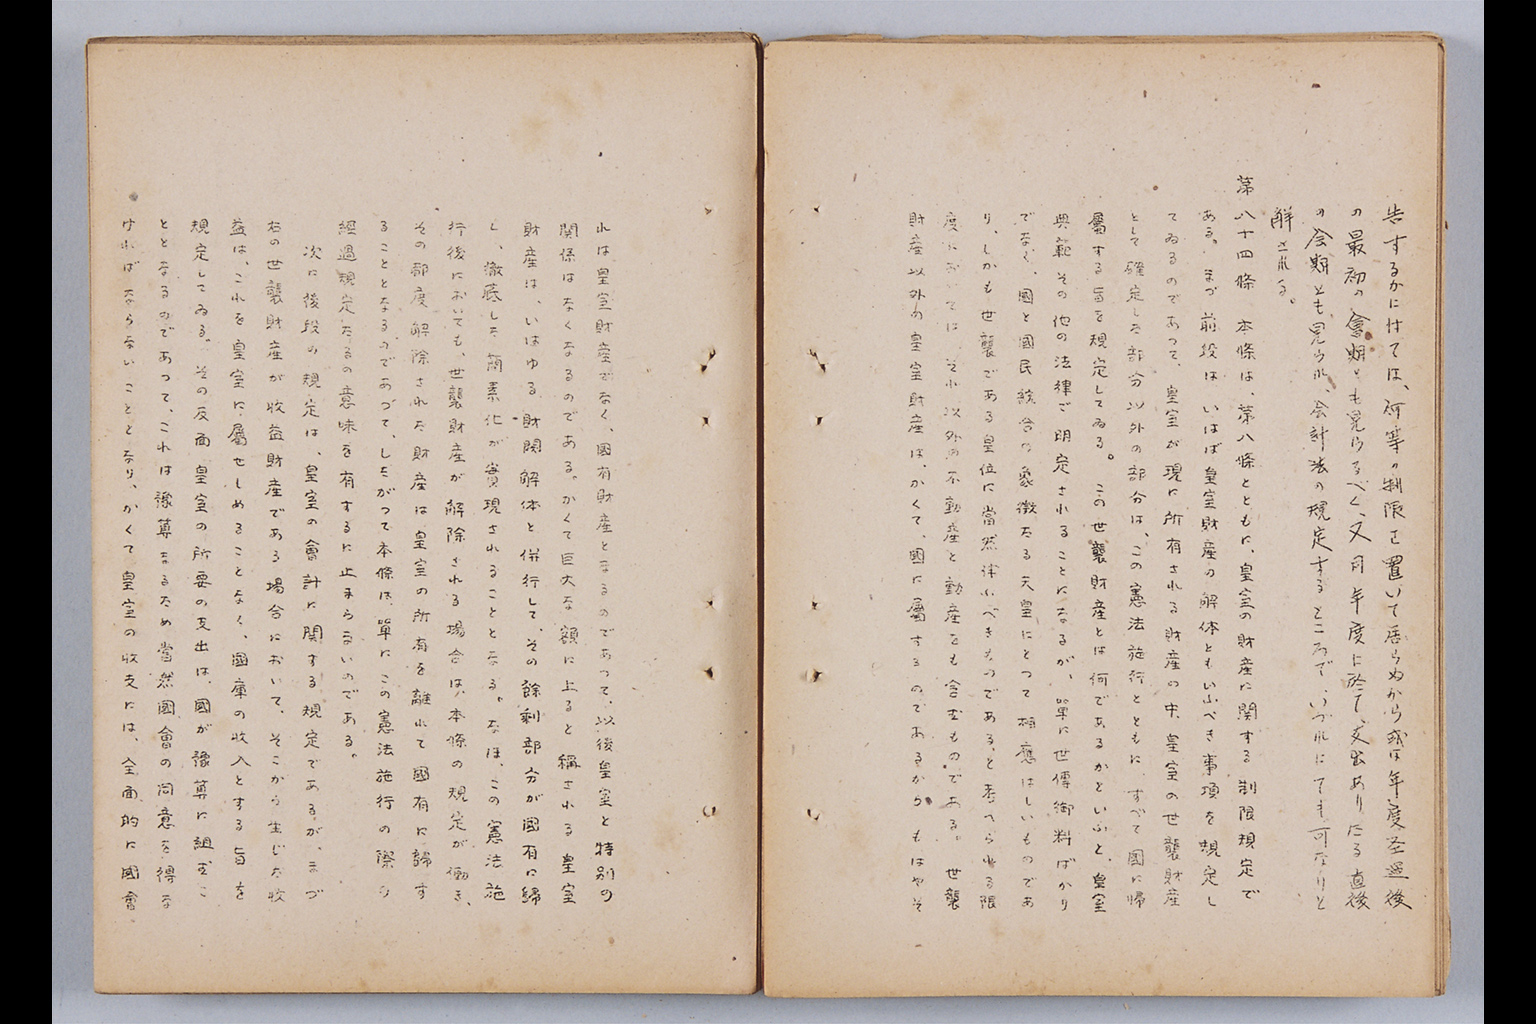 告するかに付ては、何等の制限を置いて居らぬから或は年度経過後
の最初の會期とも見らるべく、又同年度に於て、支出ありたる直後
の会期とも見られ、会計法の規定するところで、いづれにても可なりと
解される。
第八十四條　本條は、第八條とともに、皇室の財産に関する制限規定で
ある。まづ前段は、いはば皇室財産の解体ともいふべき事項を規定し
てゐるのであつて、皇室が現に所有される財産の中、皇室の世襲財産
として確定した部分以外の部分は、この憲法施行とともに、すべて國に帰
屬する旨を規定してゐる。この世襲財産とは何であるかといふと、皇室
典範その他の法律で明定されることになるが、単に世傳御料ばかり
でなく、國と國民統合の象徴たる天皇にとつて相應はしいものであ
り、しかも世襲である皇位に當然伴ふべきものであると考へられる限
度においては、それ以外の不動産と動産をも含むものである。世襲
財産以外の皇室財産は、かくて、國に屬するのであるから、もはやそ
れは皇室財産でなく、國有財産となるのであつて、以後皇室と特別の
関係はなくなるのである。かくて巨大な額に上ると稱される皇室
財産は、いはゆる財閥解体と併行して、その餘剰部分が國有に歸
し、徹底した簡素化が實現されることとなる。なほ、この憲法施
行後においても、世襲財産が解除される場合は、本條の規定が働き、
その都度解除された財産は皇室の所有を離れて國有に歸す
ることとなるのであつて、したがつて本條は、單にこの憲法施行の際の
經過規定たるの意味を有するに止まらないのである。
次に後段の規定は、皇室の會計に関する規定であるが、まづ
右の世襲財産が收益財産である場合において、そこから生じた收
益は、これを皇室に屬せしめることなく、國庫の收入とする旨を
規定してゐる。その反面、皇室の所要の支出は、國が豫算に組むこ
ととなるのであつて、これは豫算なるため當然國會の同意を得な
ければならないこととなり、かくて皇室の收支には、全面的に國會